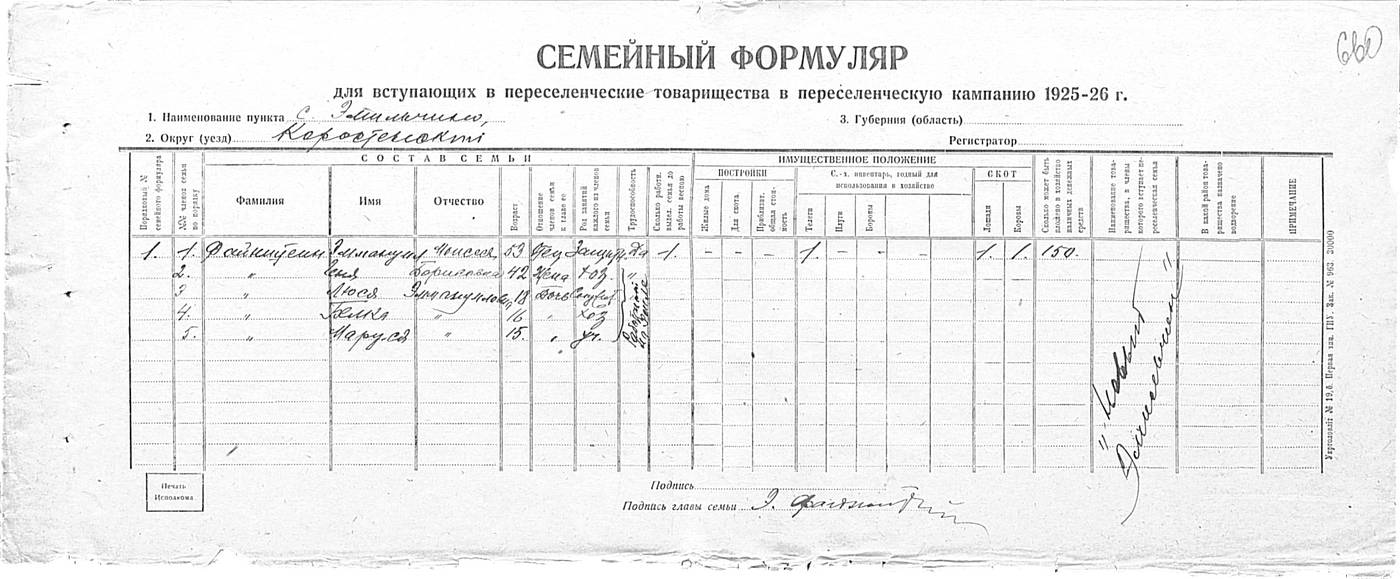 660
СЕМЕЙНЫЙ ФОРМУЛЯР
для вступающих в переселенческие товарищества в переселенческую кампанию 1925-26 г.
1. Наименование пункта с. Эмильчино,
3. Губерния (область)
2. Округ (уезд) Коростенский
Регистратор
СОСТАВ СЕМЬИ
ИМУЩЕСТВЕННОЕ ПОЛОЖЕНИЕ
Порядковый № семейного формуляра
№№ членов семьи по порядку
Фамилия
Имя
Отчество
Возраст
Отношение членов семьи к главе ее
Род занятий каждого из членов семьи
Трудоспособность
Сколько работн. выдел. семья до работы весною
ПОСТРОЙКИ
Жилые дома
Для скота.
Приблизит. общая стоимость
С.-х. инвентарь, годный для использования в хозяйстве
Телеги
Плуги
Бороны
СКОТ
Лошади
Коровы
Сколько может быть вложено в хозяйство наличных денежных средств
Наименование товарищества, в члены которого вступает переселенческая семья
В какой район товарищества назначено водворение
ПРИМЕЧАНИЕ
1. 1. Файнштейн Эммануил Моисеев 53 Отец Да 1. – – – 1. – – 1. 1. 150.
2. " Еня Борисовна 42 Жена хоз. "
3 " Люся Эммануилов. 18 Дочь
4. " " 16 " хоз
5. " Маруся " 15. " уч.
"Новый
"
Печать Исполкома
Подпись
Подпись главы семьи Э. Файнштейн
Укрполиграф № 19, б. Первая тип. ГПУ. Зак. № 963. 30000